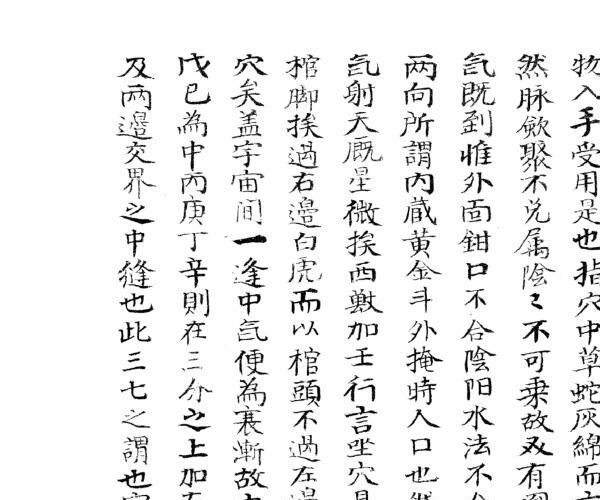 物入手受用是也指穴中草蛇灰綿而
然脉歛聚不兑属陰〻不可乗故又有
氣既到惟外面鉗口不合陰陽水法不
两向所謂内蔵黄金斗外掩時入口也
氣射天厩星微挨西數加壬行言坐穴
棺脚挨過右邉白虎而以棺頭不過左
穴矣盖宇宙間一逢中氣便為衰漸故
戊巳為中丙庚丁辛則在三分之上加
及兩邉交界之中縫也此三七之謂也